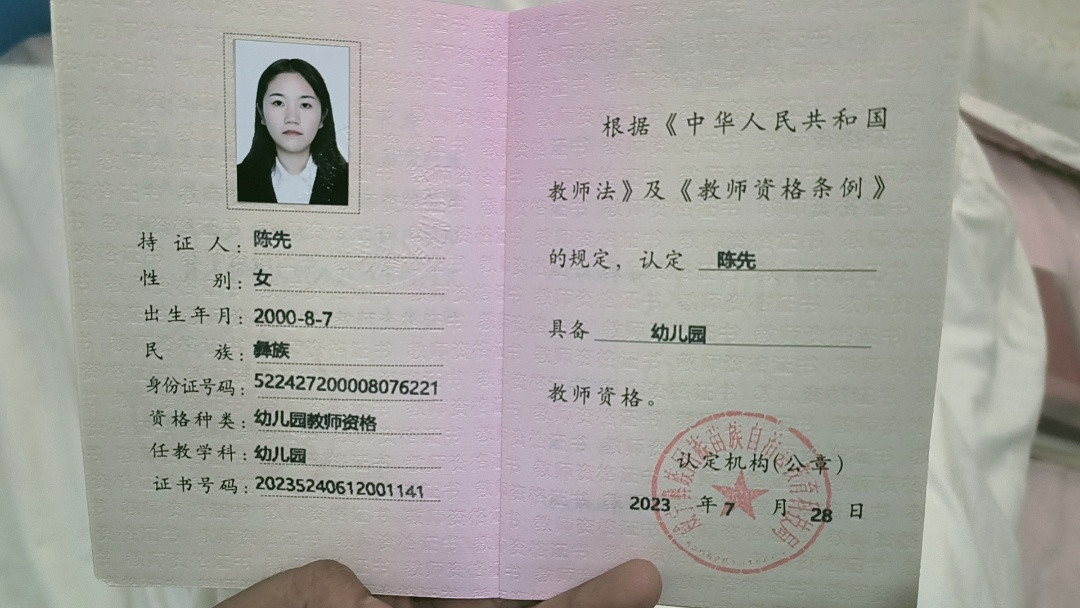 持证人：陈先
性别：女
出生年月：2000-8-7
民族：彝族
身份证号码：522427200008076221
资格种类：幼儿园教师资格
任教学科：幼儿园
证书号码：20235240612001141
根据《中华人民共和国
教师法》及《教师资格条例》
的规定，认定 陈先
具备 幼儿园
教师资格。
认定机构(公章)
2023 年 7 月 28 日